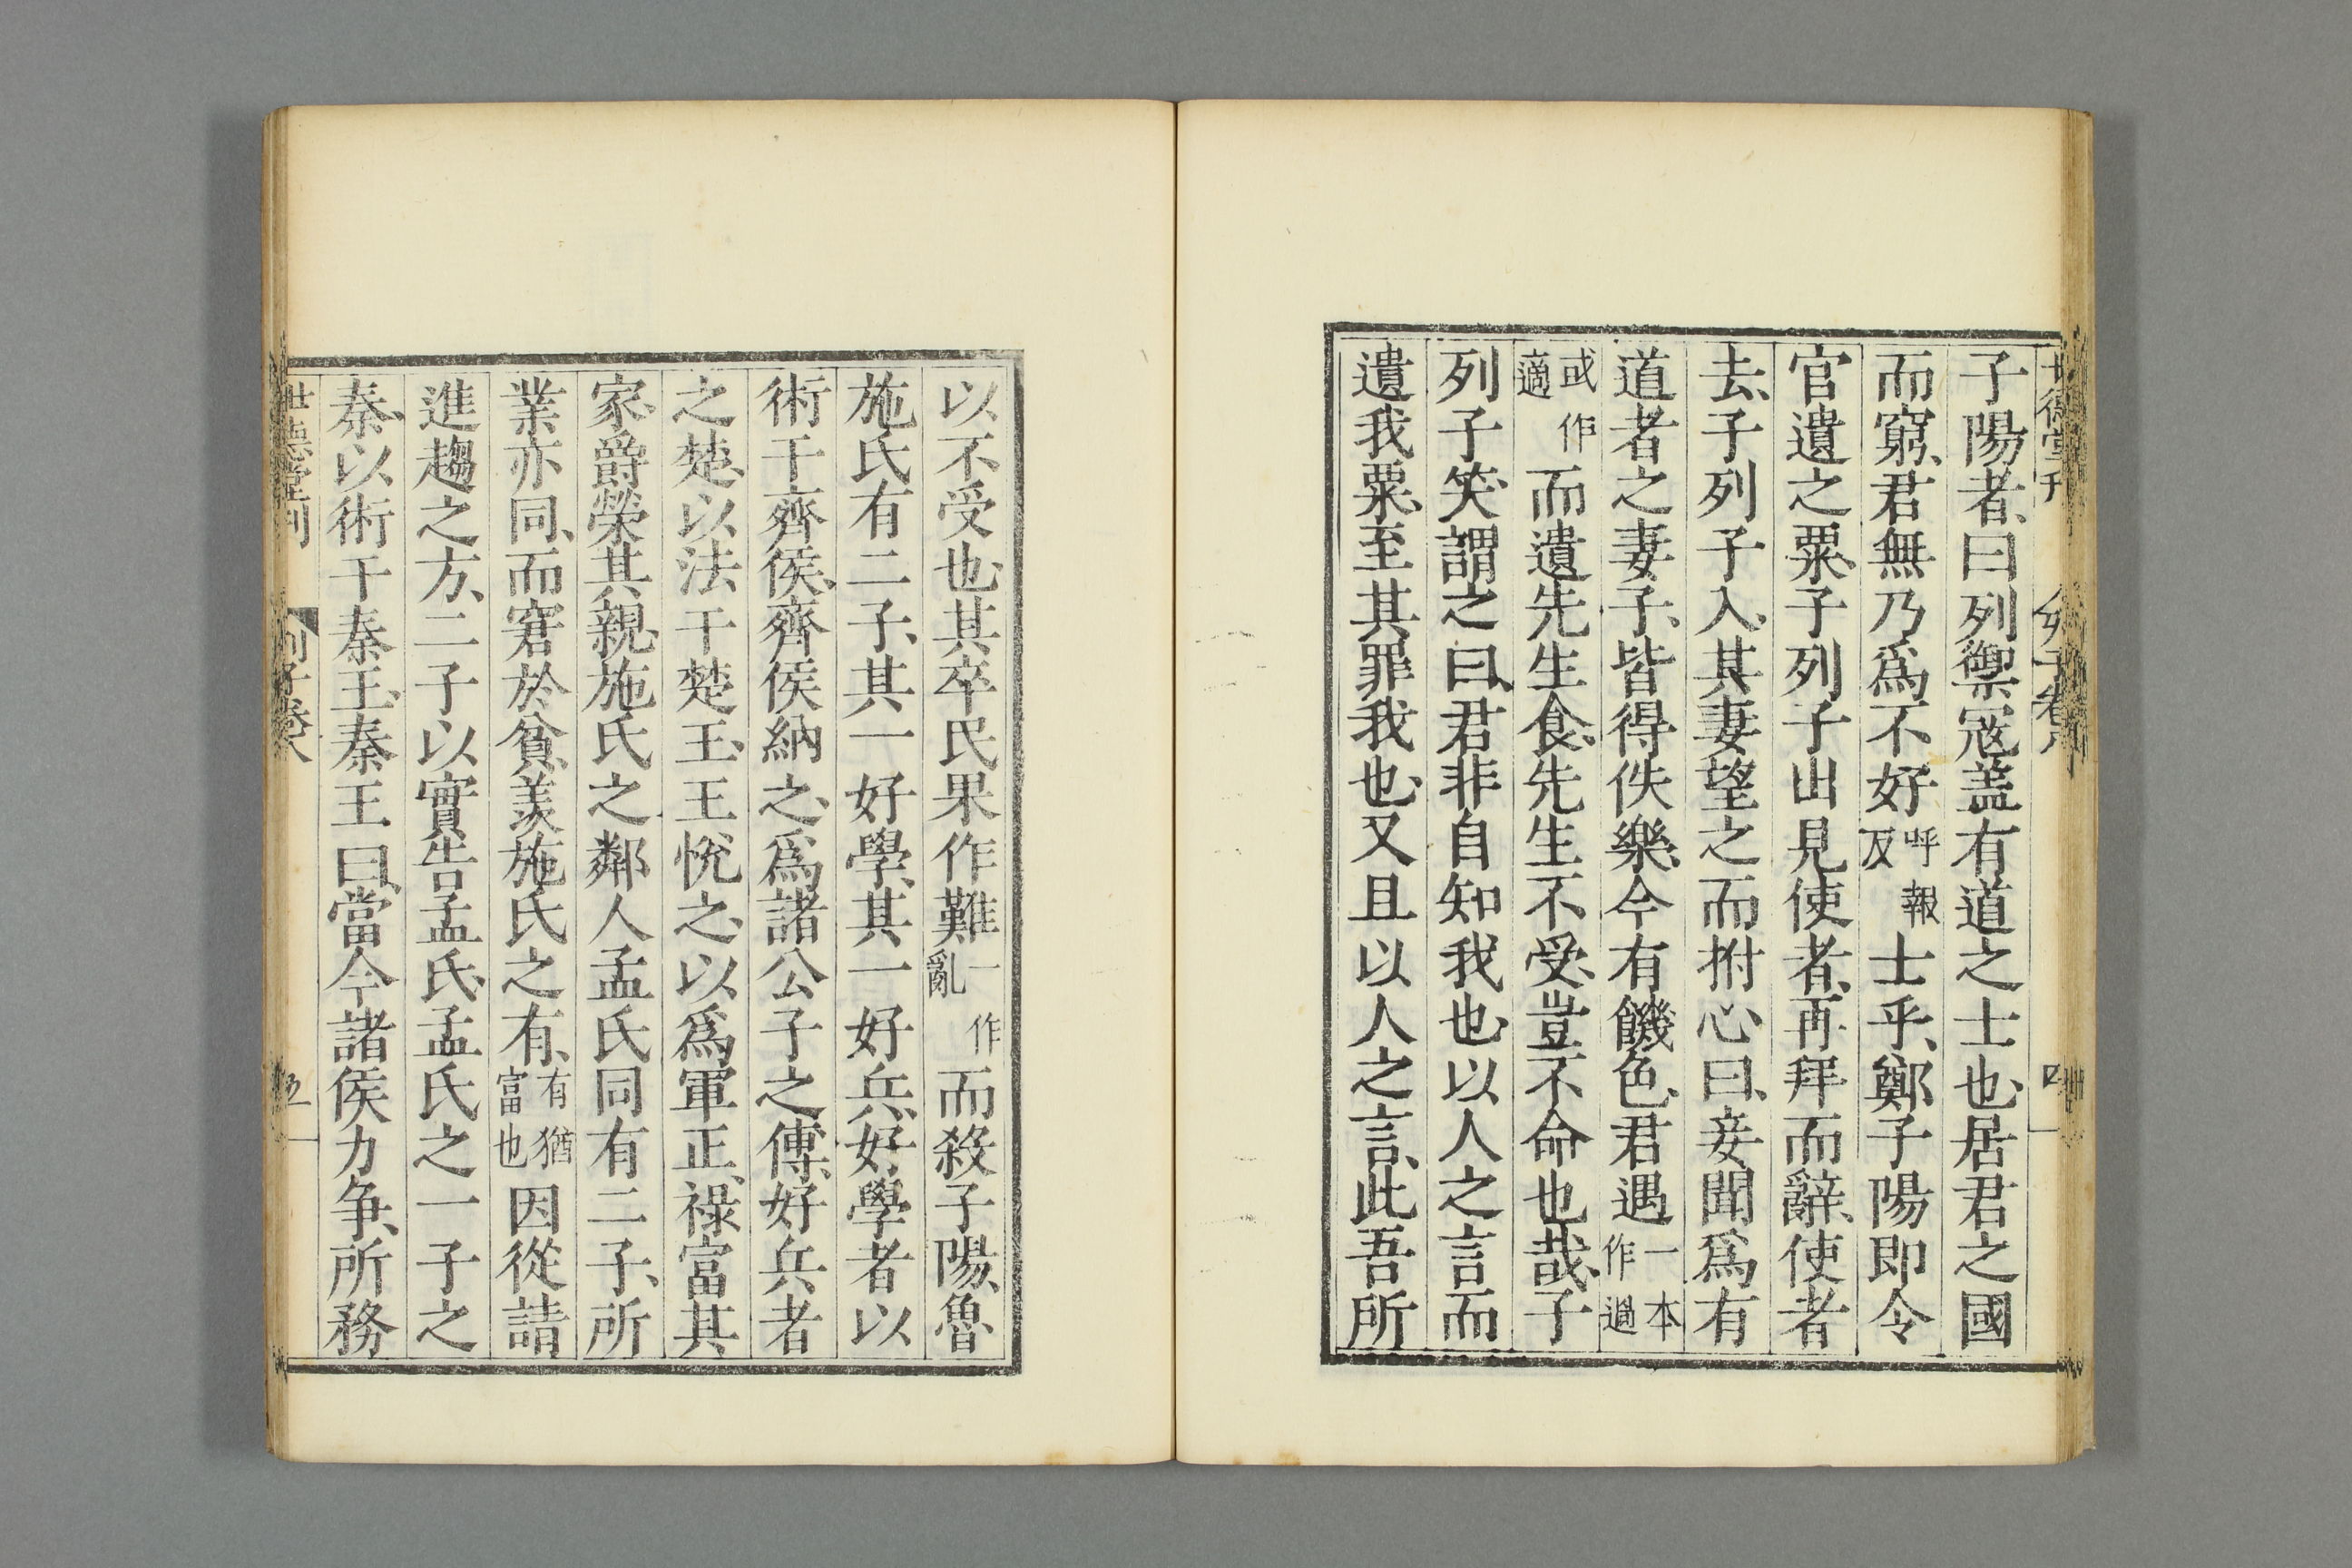 子陽者、曰列禦寇蓋有道之士也、居君之國
而窮、君無乃爲不好呼報反士乎、鄭子陽即令
官遺之粟、子列子出見使者、再拜而辭、使者
去、子列子入、其妻望之而拊心、曰、妾聞爲有
道者之妻子、皆得佚樂、今有饑色、君遇一本作過
或作適而遺先生食、先生不受、豈不命也哉、子
列子笑、謂之曰、君非自知我也、以人之言而
遺我粟、至其罪我也、又且以人之言、此吾所
以不受也、其卒民果作難一作亂而殺子陽、魯
施氏有二子、其一好學、其一好兵、好學者以
術干齊侯、齊侯納之、爲諸公子之傅、好兵者
之楚、以法干楚王、王悅之、以爲軍正、祿富其
家、爵榮其親、施氏之鄰人孟氏同有二子、所
業亦同、而窘於貧、羨施氏之有、有猶富也因從請
進趨之方、二子以實告孟氏、孟氏之一子之
秦、以術干秦王、秦王曰、當今諸侯力爭、所務
世德堂刊 列子卷八 五